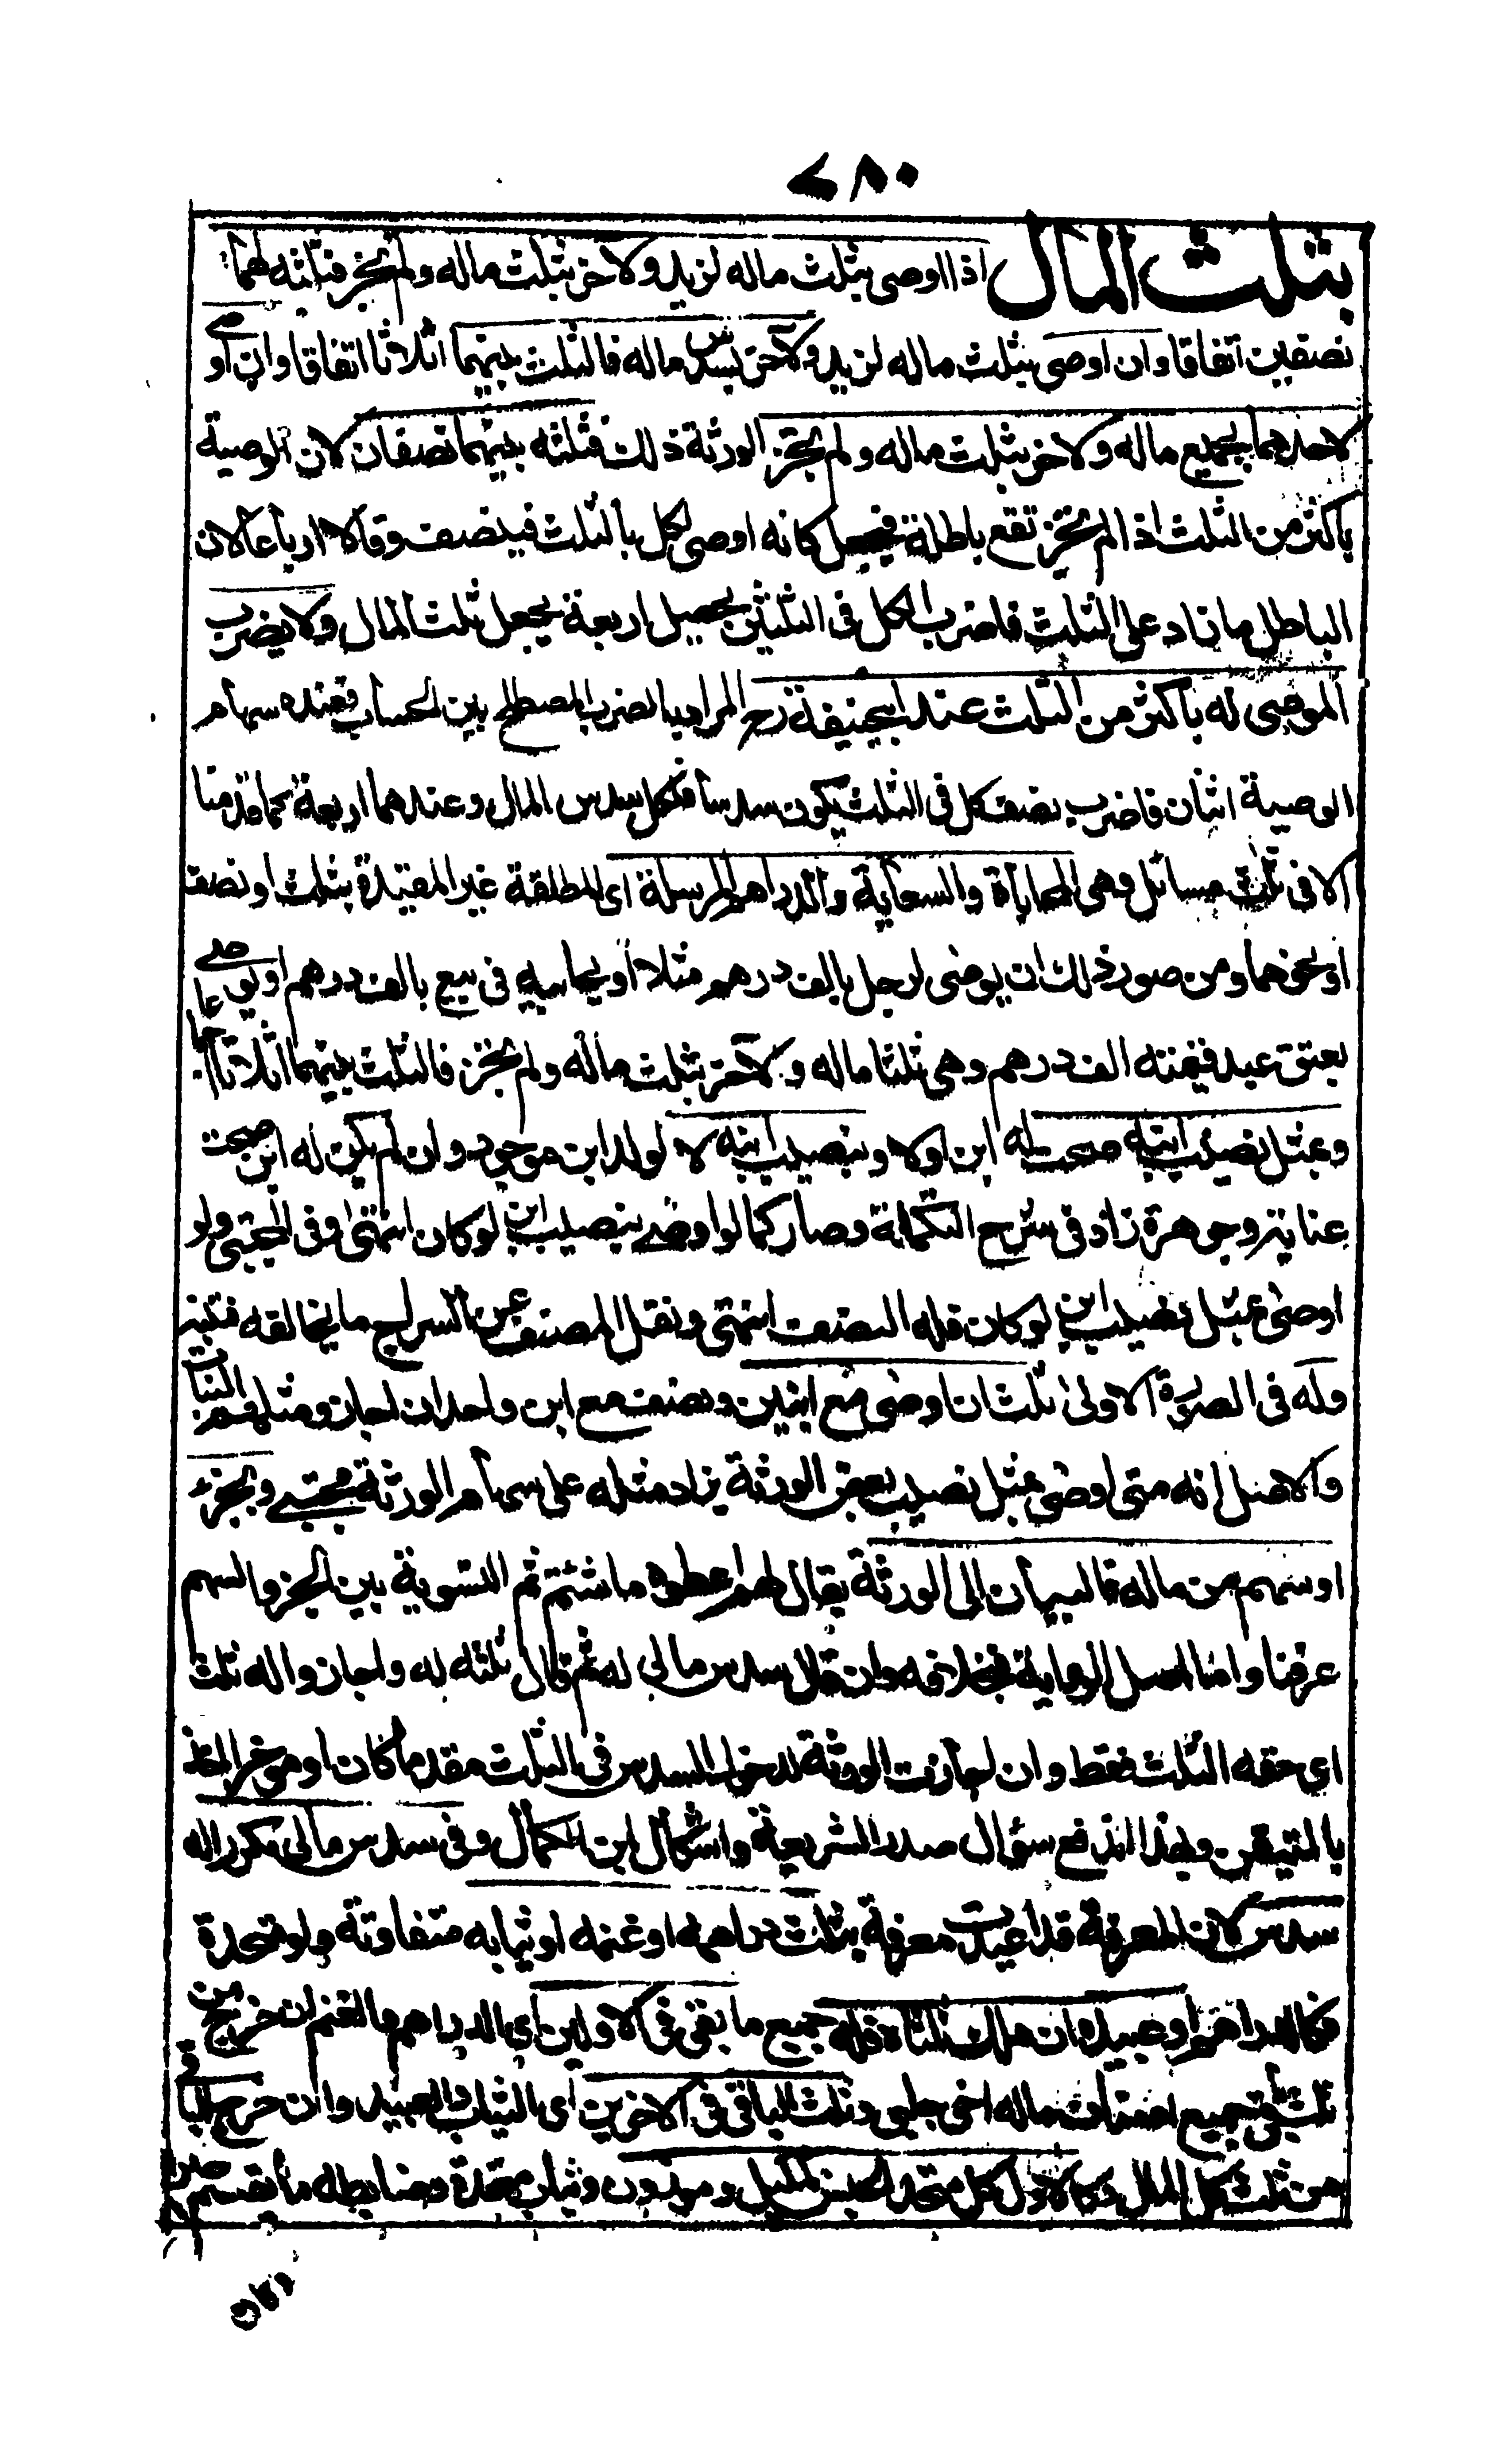 ٧٨٥
بثلث المال اذا اوصى بثلث ماله لزيد ولاخر بثلث ماله ولم تجز فثلثه لهما
نصفين اتفاقا وان اوصى بثلث ماله لزيد ولآخر بسدس ماله فالثلث بينهما اثلاثا اتفاقا وان اوصى
لاحدهما بجميع ماله ولاخر بثلث ماله ولم تجز الورثة ذلك فثلثه بينهما نصفان لان الوصية
باكثر من الثلث اذا لم تجز تقع باطلة فيجعل كانه اوصى لكل بالثلث فينصف وقالا ارباعا لان
الباطل ما زاد على الثلث فاضرب الكل فى الثلثين يحصل اربعة يجعل ثلث المال ولا يضرب
الموصى له باكثر من الثلث عند ابيحنيفة رح المراد بالضرب المصطلح بين الحساب فعنده سهام
الوصية اثنان فاضرب نصف كل فى الثلث يكون سدسا فلكل سدس المال وعندهما اربعة كما قدمنا
الا فى ثلث مسائل وهى المحاباة والسعاية والدراهم المرسلة اى المطلقة غير المقيدة بثلث او نصف
او نحوهما ومن صور ذلك ان يوصى لرجل بالف درهم مثلا او يحابيه فى بيع بالف درهم او يوصى
بعتق عبد قيمته الف درهم وهى ثلثا ماله ولآخر بثلث ماله ولم تجز فالثلث بينهما اثلاثا اجماعا
وبمثل نصيب ابنه صحت له ابن اولا وبنصيب ابنه لا لو له ابن موجود وان لم يكن له ابن صحت
عناية وجوهرة زاد فى شرح التكملة وصار كما لو اوصى بنصيب ابن لو كان انتهى وفى المجتبى ولو
اوصى بمثل نصيب ابن لو كان فله النصف انتهى ونقل المصنف عن السراج ما يخالفه فتنبه
وله فى الصورة الاولى ثلث ان اوصى مع ابنين ونصف مع ابن واحد ان اجاز ومثلهم البنات
والاصل انه متى اوصى بمثل نصيب بعض الورثة يزاد مثله على سهام الورثة مجتبى وبجزء
او سهم من ماله فالبيان الى الورثة يقال لهم اعطوه ما شئتم ثم التسوية بين الجزء والسهم
عرفنا واما اصل الرواية فبخلافه وان قال سدس مالى له ثم قال ثلثه له واجازوا له ثلث
اى حقه الثلث فقط وان اجازت الورثة لدخول السدس فى الثلث مقدما كان او موخرا اخذ
بالمتيقن وبهذا اندفع سؤال صدر الشريعة واشكال ابن الكمال وفى سدس مالى مكررا له
سدس لان المعرفة قد اعيدت معرفة بثلث دراهمه او غنمه او ثيابه متفاوتة ولو متحدة
فكالدراهم او عبيده ان هلك ثلثاه فله جميع ما بقى فى الاولين اى الدراهم والغنم ان خرج من
ثلث باقى جميع اصناف ماله اخى جلبى وثلث الباقى فى الاخرين اى الثياب والعبيد وان خرج الباقى
من ثلث كل المال وكالاول كل متحد الجنس كمكيل وموزون وثياب متحدة وضابطه ما يقسم جبرا